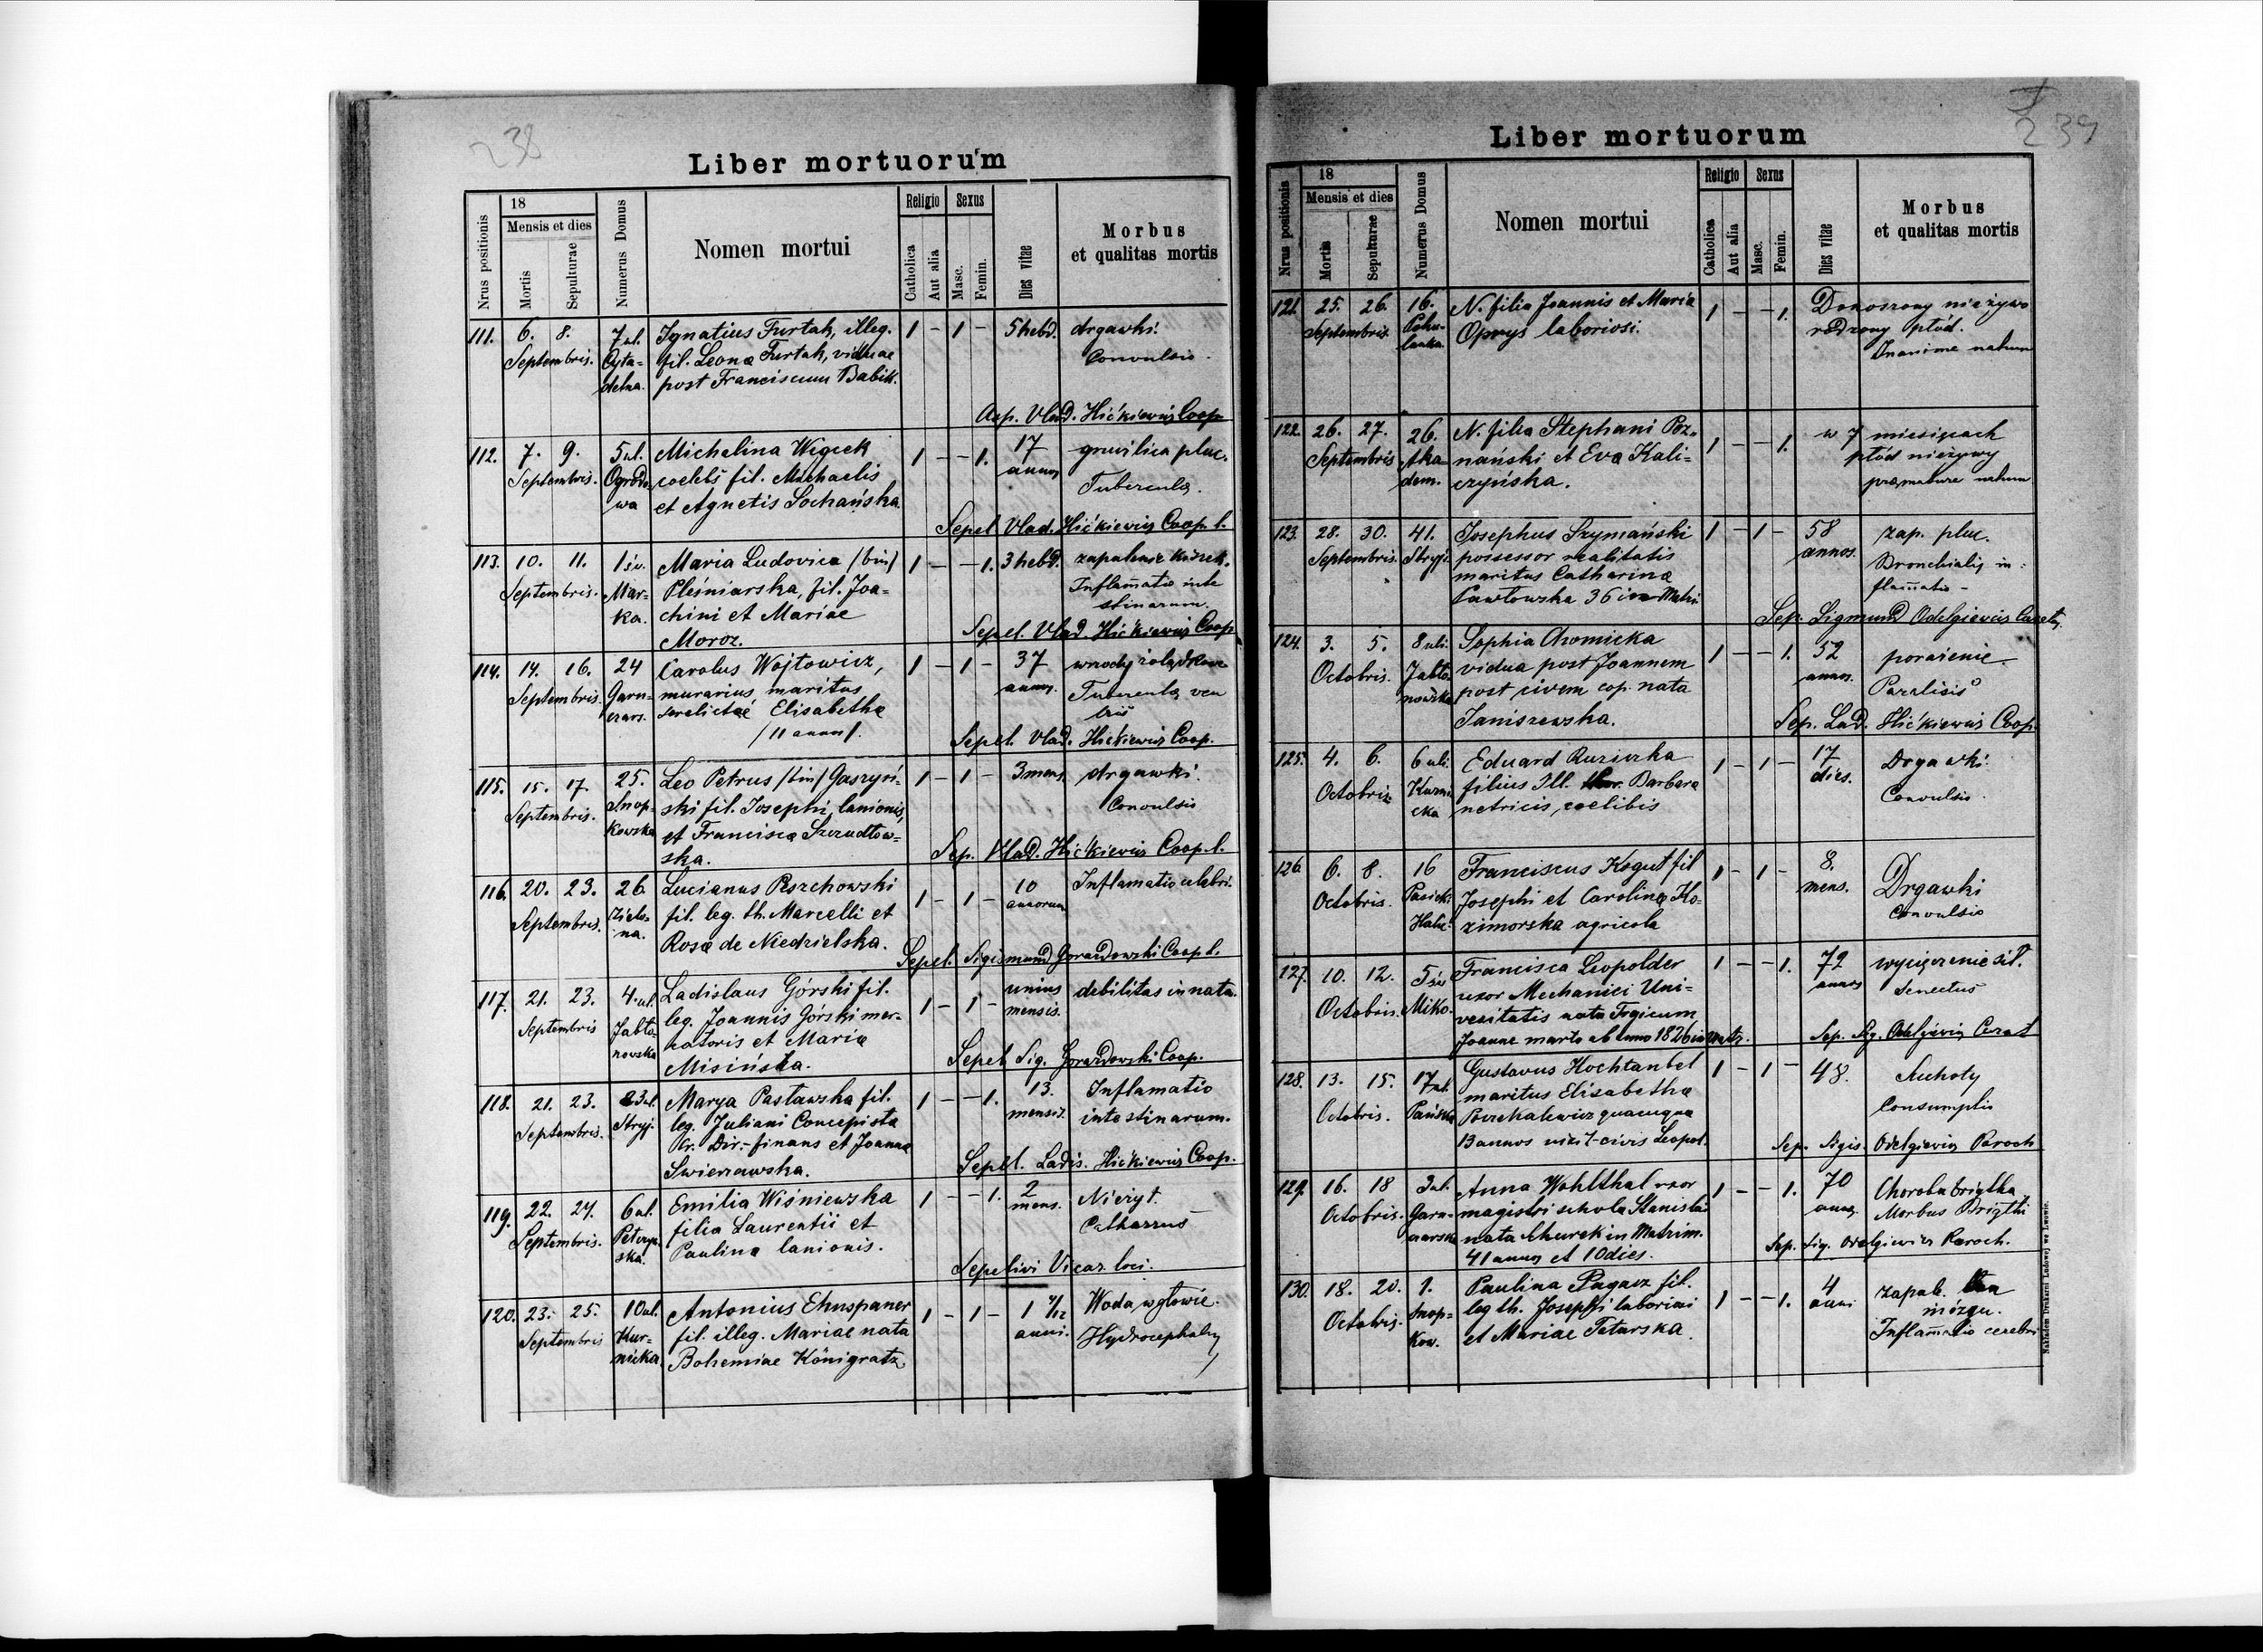 238
Liber mortuorum
Nrus positionis
18
Mensis et dies
Mortis
Sepulturae
Numerus Domus
Nomen mortui
Religio
Catholica
Aut alia
Sexus
Masc.
Femin.
Dies vitae
Morbus
et qualitas mortis
111. 6. 8. 7 ul. Ignatius Furtak, illeg. 1 - 1 - 5 hebd. drgawki.
Septembris. Cyta- fil. Leona Furtak, viduae Convulsio.
delna. post Franciscum Babik.
Vlad. Hićkiewicz Coop.
112. 7. 9. 5 ul. Michalina Wigeek 1 - - 1. 17 gruźlica płuc.
Septembris. Ogrodo coelebs fil. Michaelis annos Tubercula.
wa et Agnetis Sochańska.
Sepel. Vlad. Hićkiewicz Coop. l.
113. 10. 11. 1 św. Maria Ludovica /bin/ 1 - - 1. 3 hebd. zapalenie kiszek.
Septembris. Mar- Pleśniarska, fil. Joa- Inflam̄atio inte
ka. chimi et Mariae stinarum.
Moroz. Sepel. Vlad. Hićkiewicz Coop
114. 14. 16. 24 Carolus Wojtowicz, 1 - 1 - 37 wrzody żołądkowe
Septembris. Garn- murarius maritus annos. Tubercula ven
czars. derelictae Elisabetha tris
/11 annos/. Sepel. Vlad. Hićkiewicz Coop.
115. 15. 17. 25. Leo Petrus /bin/ Gaszyń- 1 - 1 - 3 mens. drgawki.
Septembris. Snop- ski fil. Josephi lanionis, Convulsio
kowska et Francisca Szczudłow-
ska. Sep. Vlad. Hićkiewicz Coop. l.
116. 20. 23. 26 Lucianus 1 - 1 - 10 Inflamatio
Septembris. Zielo- fil. leg. th. Marcelli et annorum
na. Rosa de Niedzielska.
Sepel. Sigismund Gorazdowski Coop. l.
117. 21. 23. 4. ul. Ladislaus Górski fil. 1 - 1 - unius debilitas innata.
Septembris Jabło- leg. Joannis Górski mer- mensis.
nowska catoris et Maria
Misińska. Sepel. Sig. Gorazdowski Coop.
118. 21. 23. 23 ul. Marya Pasławska fil. 1 - - 1. 13. Inflamatio
Septembris. Stryj. leg. Juliani Concepista mensis. intestinarum.
Cr. Dir.- finans et Joanna
Swierzawska. Sepel. Ladis. Hićkiewicz Coop.
119. 22. 24. 6 ul. Emilia Wiśniewska 1 - - 1. 2 Nieżyt.
Septembris. filia Laurentii et mens. Catharrus
ska. Paulina lanionis.
Sepelivi Vicar. loci.
120. 23. 25. 10 ul. Antonius Ehnspaner 1 - 1 - 1 4/12 Woda w głowie.
Septembris Kur- fil. illeg. Mariae nata anni. Hydrocephalus
nicka. Bohemiae Königratz.
239
Liber mortuorum
Nrus positionis
18
Mensis et dies
Mortis
Sepulturae
Numerus Domus
Nomen mortui
Religio
Catholica
Aut alia
Sexus
Masc.
Femin.
Dies vitae
Morbus
et qualitas mortis
121. 25. 26. 16. N. filia Joannis et Maria 1 - - 1. Donoszony nieżywo
Septembris. Pohu- Oprys laboriosi. rodzony płód.
lanka. Inanime natum
122. 26. 27. 26. N. filia Stephani Poz- 1 - - 1. w 7 miesiącach
Septembris Aka- nański et Eva Kali- płód nieżywy
dem. czyńska. praemature natum
123. 28. 30. 41. Josephus Szymański 1 - 1 - 58 zap. płuc.
Septembris. Stryj. possessor realitatis annos. Bronchialis in-
maritus Catharina flam̄atio -
Pawłowska 36 in Matri
Sep. Sigmund Odelgiewicz
124. 3. 5. 8 uli. Sophia Chomicka 1 - - 1. 52 porażenie
Octobris. Jabło- vidua post Joannem annos. Paralisis
nowska post civem cop. nata
Janiszewska. Sep. Lad. Hićkiewicz Coop.
125. 4. 6. 6 uli. Eduard Ruziczka 1 - 1 - 17 Drgawki.
Octobris filius Ill. Barbara dies. Convulsio.
cka coelibis
126. 6. 8. 16 Franciscus Kogut fil 1 - 1 - 8. Drgawki
Octobris. Pasieki Josephi et Carolina Ko- mens. Convulsio
Halic. zimorska agricola
127. 10. 12. 5 św Francisca Leopolder 1 - - 1. 72 wycięczenie sił.
Octobris. Miko. uxor Mechanici Uni- annos Senectus
versitatis nata
Joanne marto ab anno 1826 in matr. Sep. Sig. Odelgiewicz Curat
128. 13. 15. 17 ul. Gustavus Hochtanbel 1 - 1 - 48. Suchoty
Octobris. Pańska maritus Elisabetha Consumptio
13 annos vixit - civis Leopol. Sep. Sigis. Odelgiewicz Paroch
129. 16. 18 3 ul. Anna Wohlthal uxor 1 - - 1. 70 Choroba Brigtha
Octobris. Garn- magistri schola Stanisla annos. Morbus Brigthi
carska nata Churek in Matrim.
41 annos et 10 dies. Sep. Sig. Odelgiewicz Paroch.
130. 18. 20. 1. Paulina Pagacz fil. 1 - - 1. 4 zapal.
Octobris. Snop- leg th. Josephi laboriai anni mózgu.
kow. et Mariae Tatarska. Inflam̄atio cerebri
Nakładem Drukarni Ludowej we Lwowie.